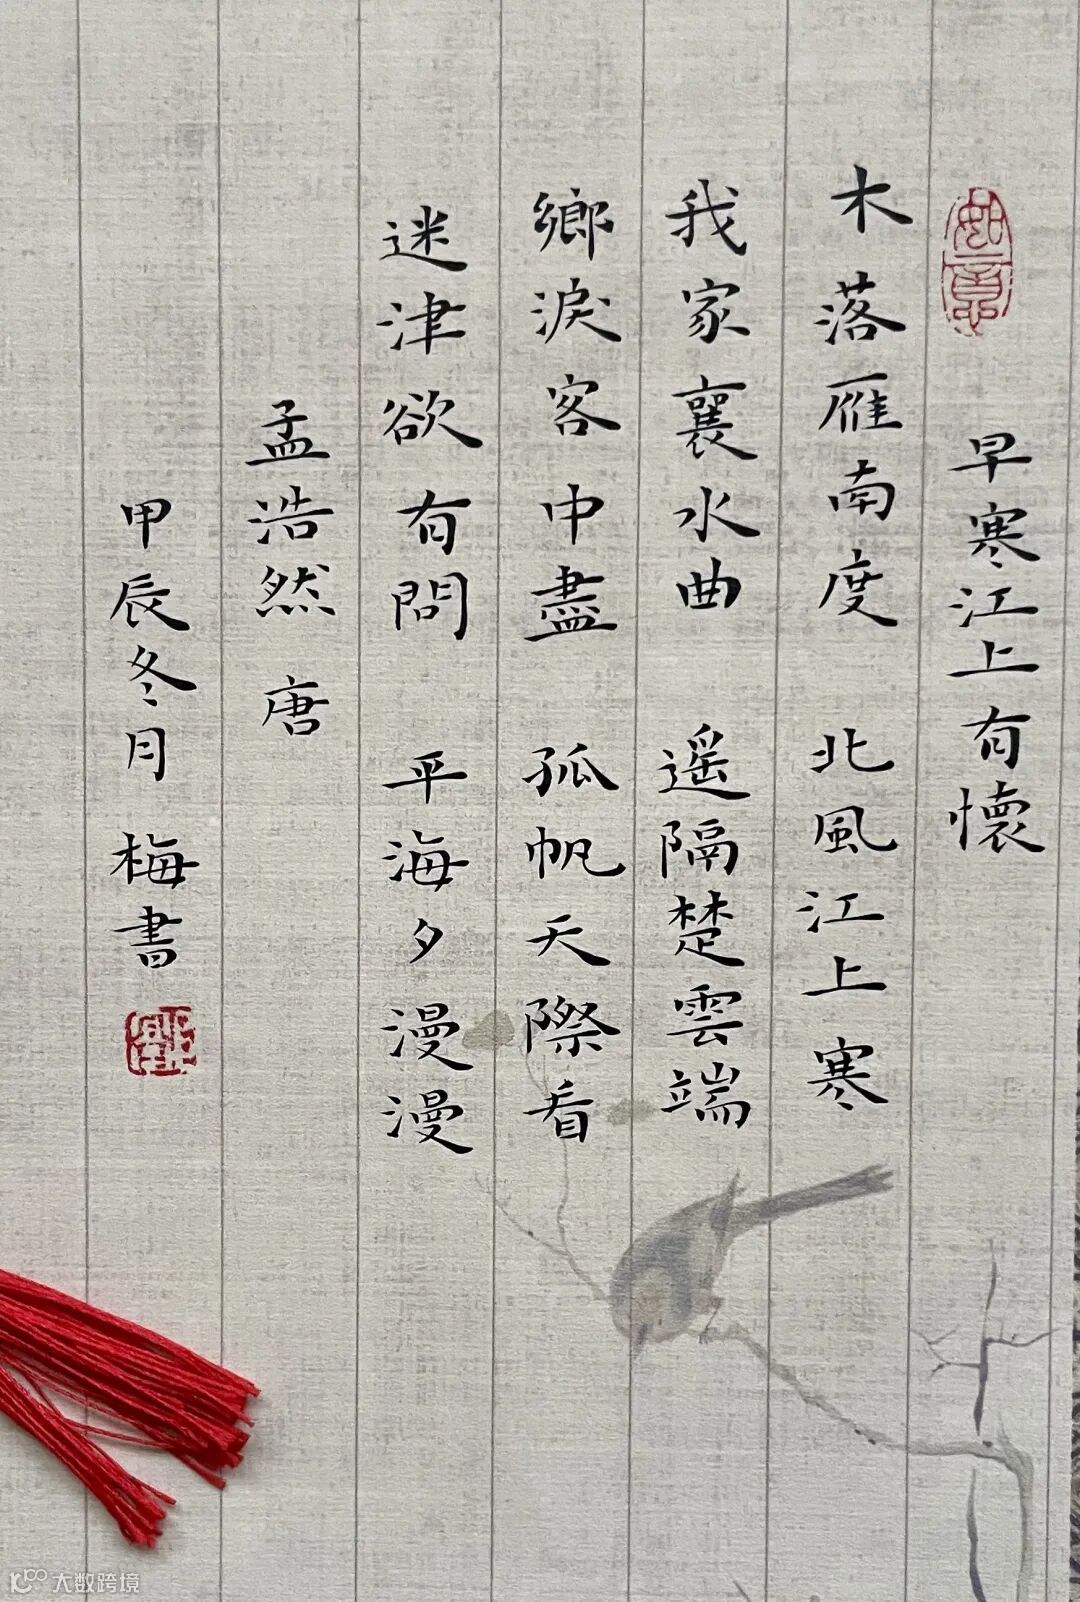 如意
早寒江上有懷
木落雁南度 北風江上寒
我家襄水曲 遥隔楚雲端
鄉淚客中盡 孤帆天際看
迷津欲有問 平海夕漫漫
孟浩然 唐
甲辰冬月 梅書
大数跨境